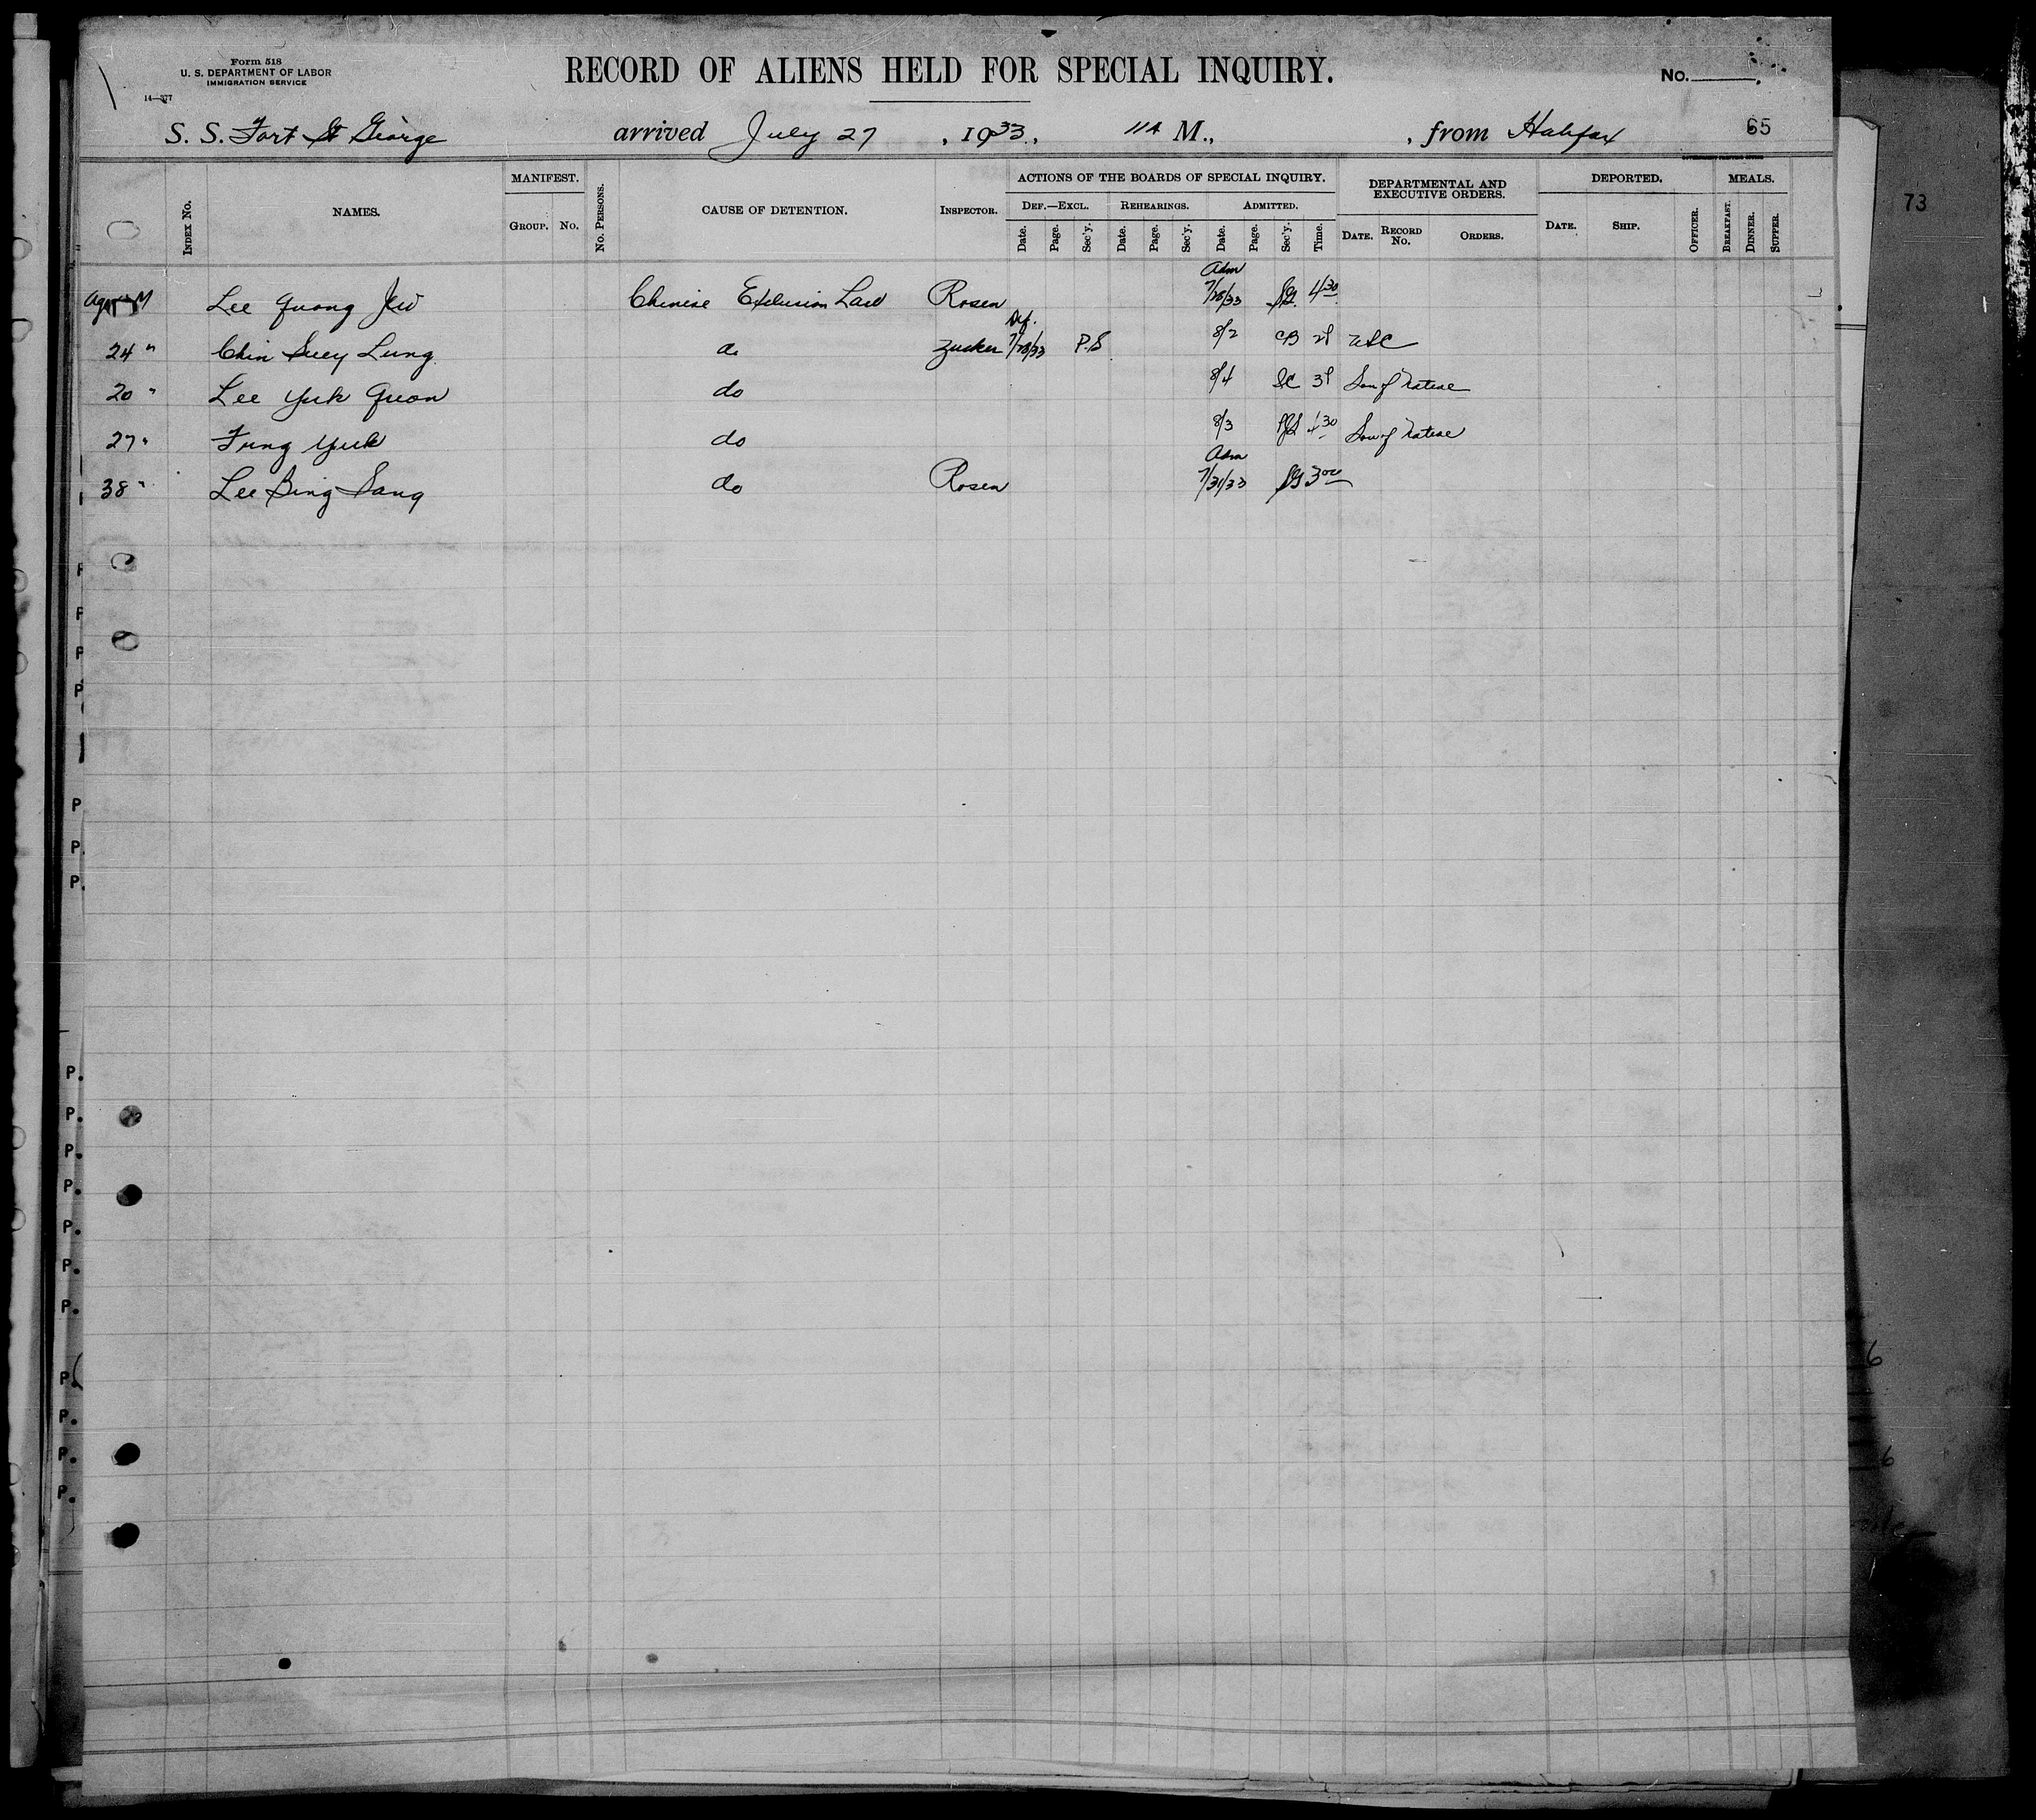 Form 518
U. S. DEPARTMENT OF LABOR
IMMIGRATION SERVICE
14—377
RECORD OF ALIENS HELD FOR SPECIAL INQUIRY.
No.
S. S. Fort St George arrived July 27, 1933, 11A M., , from Halifax
65
73
INDEX No.
NAMES.
MANIFEST.
GROUP. No.
No. PERSONS.
CAUSE OF DETENTION.
INSPECTOR.
ACTIONS OF THE BOARDS OF SPECIAL INQUIRY.
DEF.—EXCL. REHEARINGS. ADMITTED.
Date. Page. Sec'y. Date. Page. Sec'y. Date. Page. Sec'y. Time.
DEPARTMENTAL AND
EXECUTIVE ORDERS.
DATE. RECORD No. ORDERS.
DEPORTED.
DATE. SHIP. OFFICER.
MEALS.
BREAKFAST. DINNER. SUPPER.
Lee Quong Jew Chinese Exclusion Law Rosen Adm 7/28/33 SG 4 30
24 " Chin Suey Lung do Zucker Def. 7/28/33 P.S 8/2 CB 2P USC
20 " Lee Yuk Quon do 8/4 SC 3P Son of Native
27 " Fung Yuk do 8/3 430 Son of Native
38 " Lee Bing Sang do Rosen Adm 7/31/33 SG 3 00
P
P
P
P
P
P.
P.
P.
P.
P.
P.
P.
P.
P.
P.
P.
P.
P.
6
6